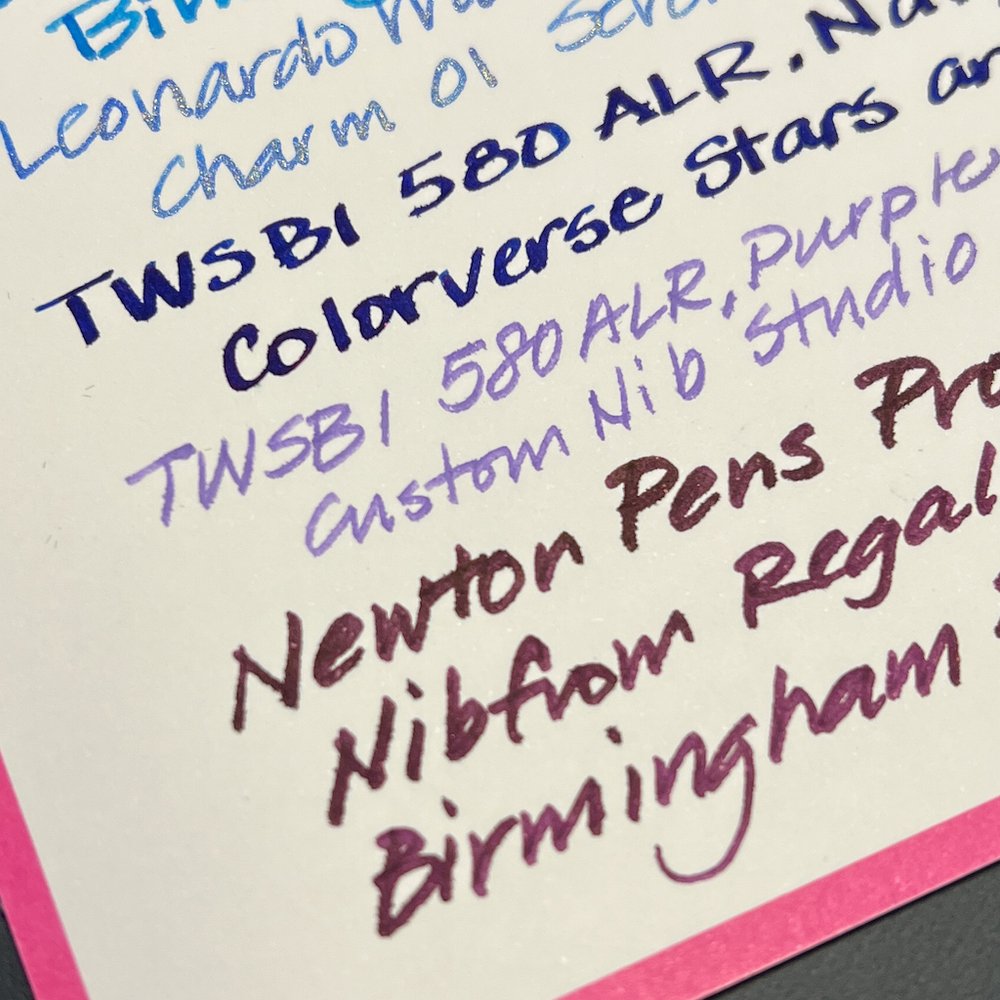 Leonardo
Charm 01
TWSBI 580 ALR, Na
Colorverse Stars an
TWSBI 580 ALR, Purple
Custom Nib Studio
Newton Pens Pro
Nibfrom Regal
Birmingham